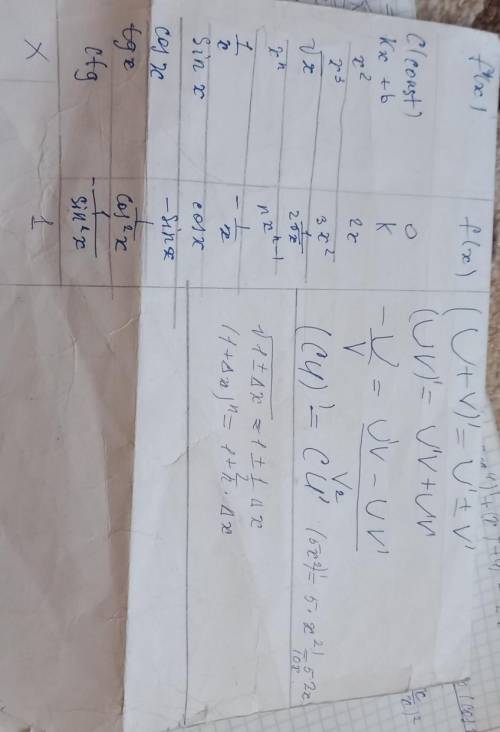 f(x) f'(x)
C(const) 0
Kx + b K
x² 2x
x³ 3x²
√x 1/2√x
xⁿ nxⁿ⁻¹
1/x -1/x
Sin x cos x
Cos x -Sin x
tg x 1/Cos²x
ctg -1/sin²x
X 1
(U+V)' = U' ± V'
(UV)' = U'V + UV'
-U/V = U'V - UV'/V²
(CU)' = CU' (5x²)' = 5·x²' = 5 2x
10x
√1 ± Δx ≈ 1 ± 1/2 Δx
(1+Δx)ⁿ = 1 + n · Δx